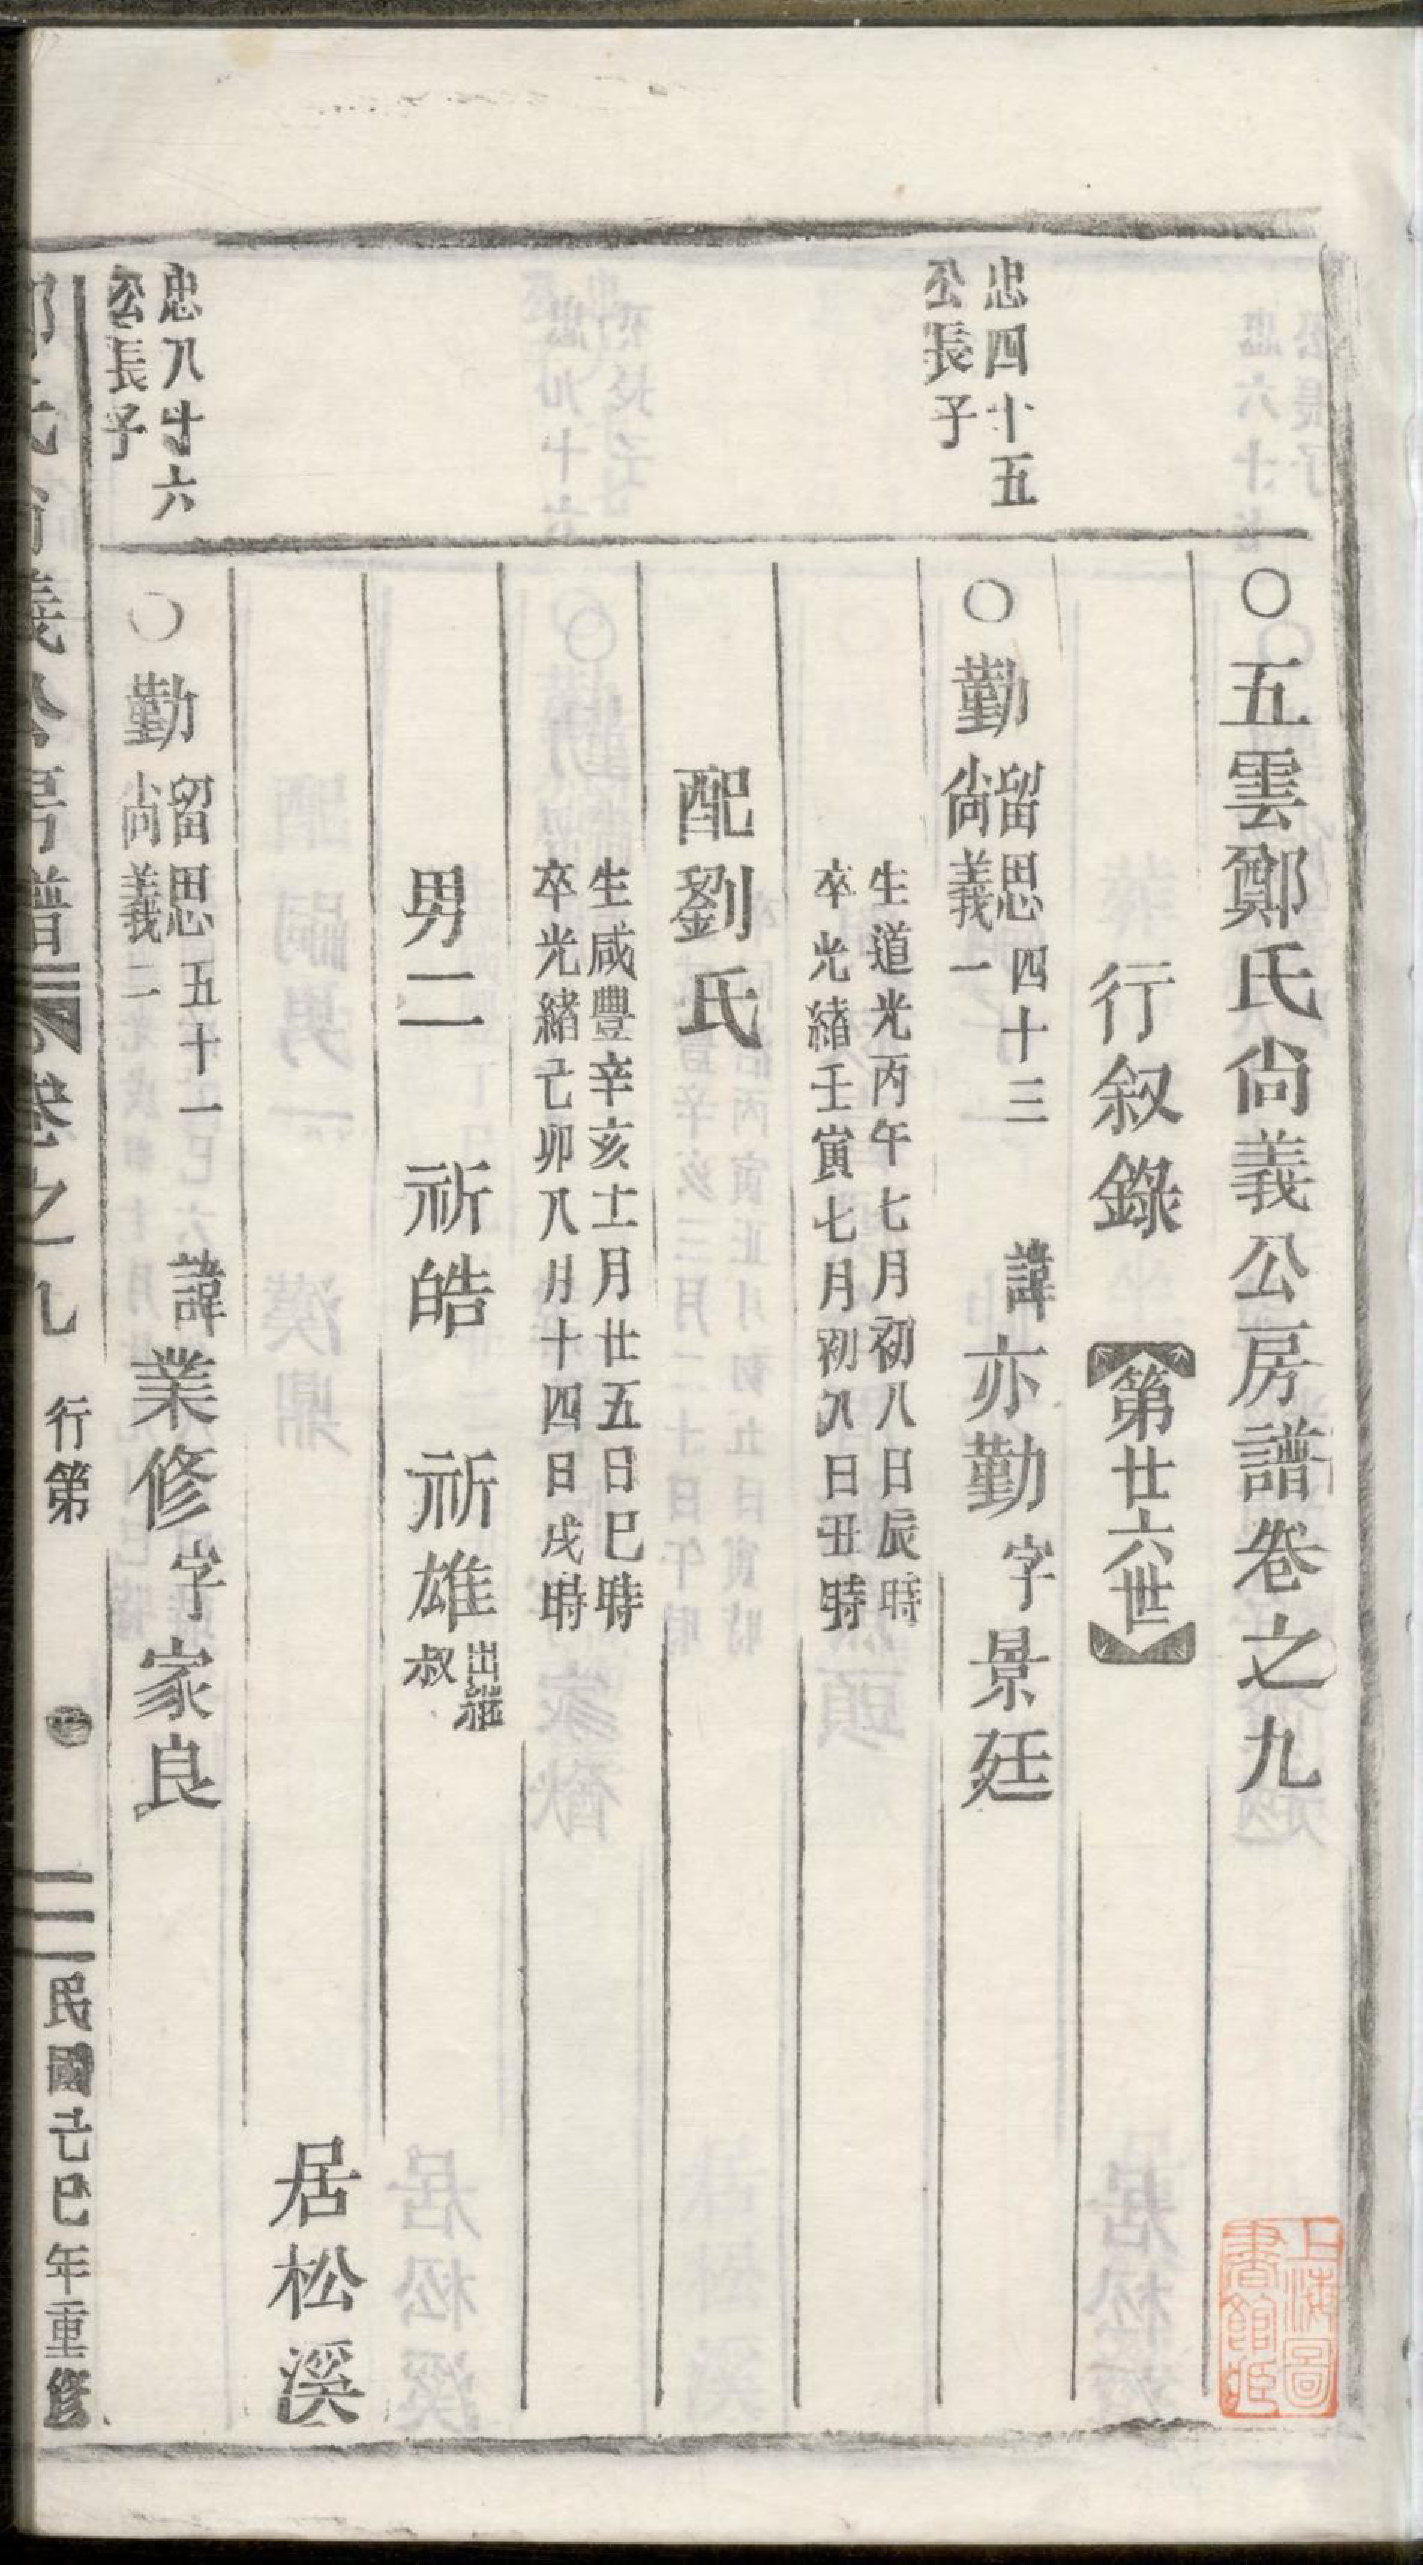 ○五雲鄭氏尙義公房譜卷之九
行叙錄【第廿六世】
忠四十五
公長子
○勤留思四十三
尙義一
諱亦勤字景廷
生道光丙午七月初八日辰時
卒光緖壬寅七月初八日丑時
配劉氏
生咸豐辛亥十一月廿五日巳時
卒光緖己卯八月十四日戌時
男二 祈皓 祈雄出繼
叔
居松溪
忠八十六
公長子
○勤留思五十一
尙義二
諱業修字家良
鄭氏尙義公房譜 卷之九 行第 一 民國己巳年重修
上海圖
書館